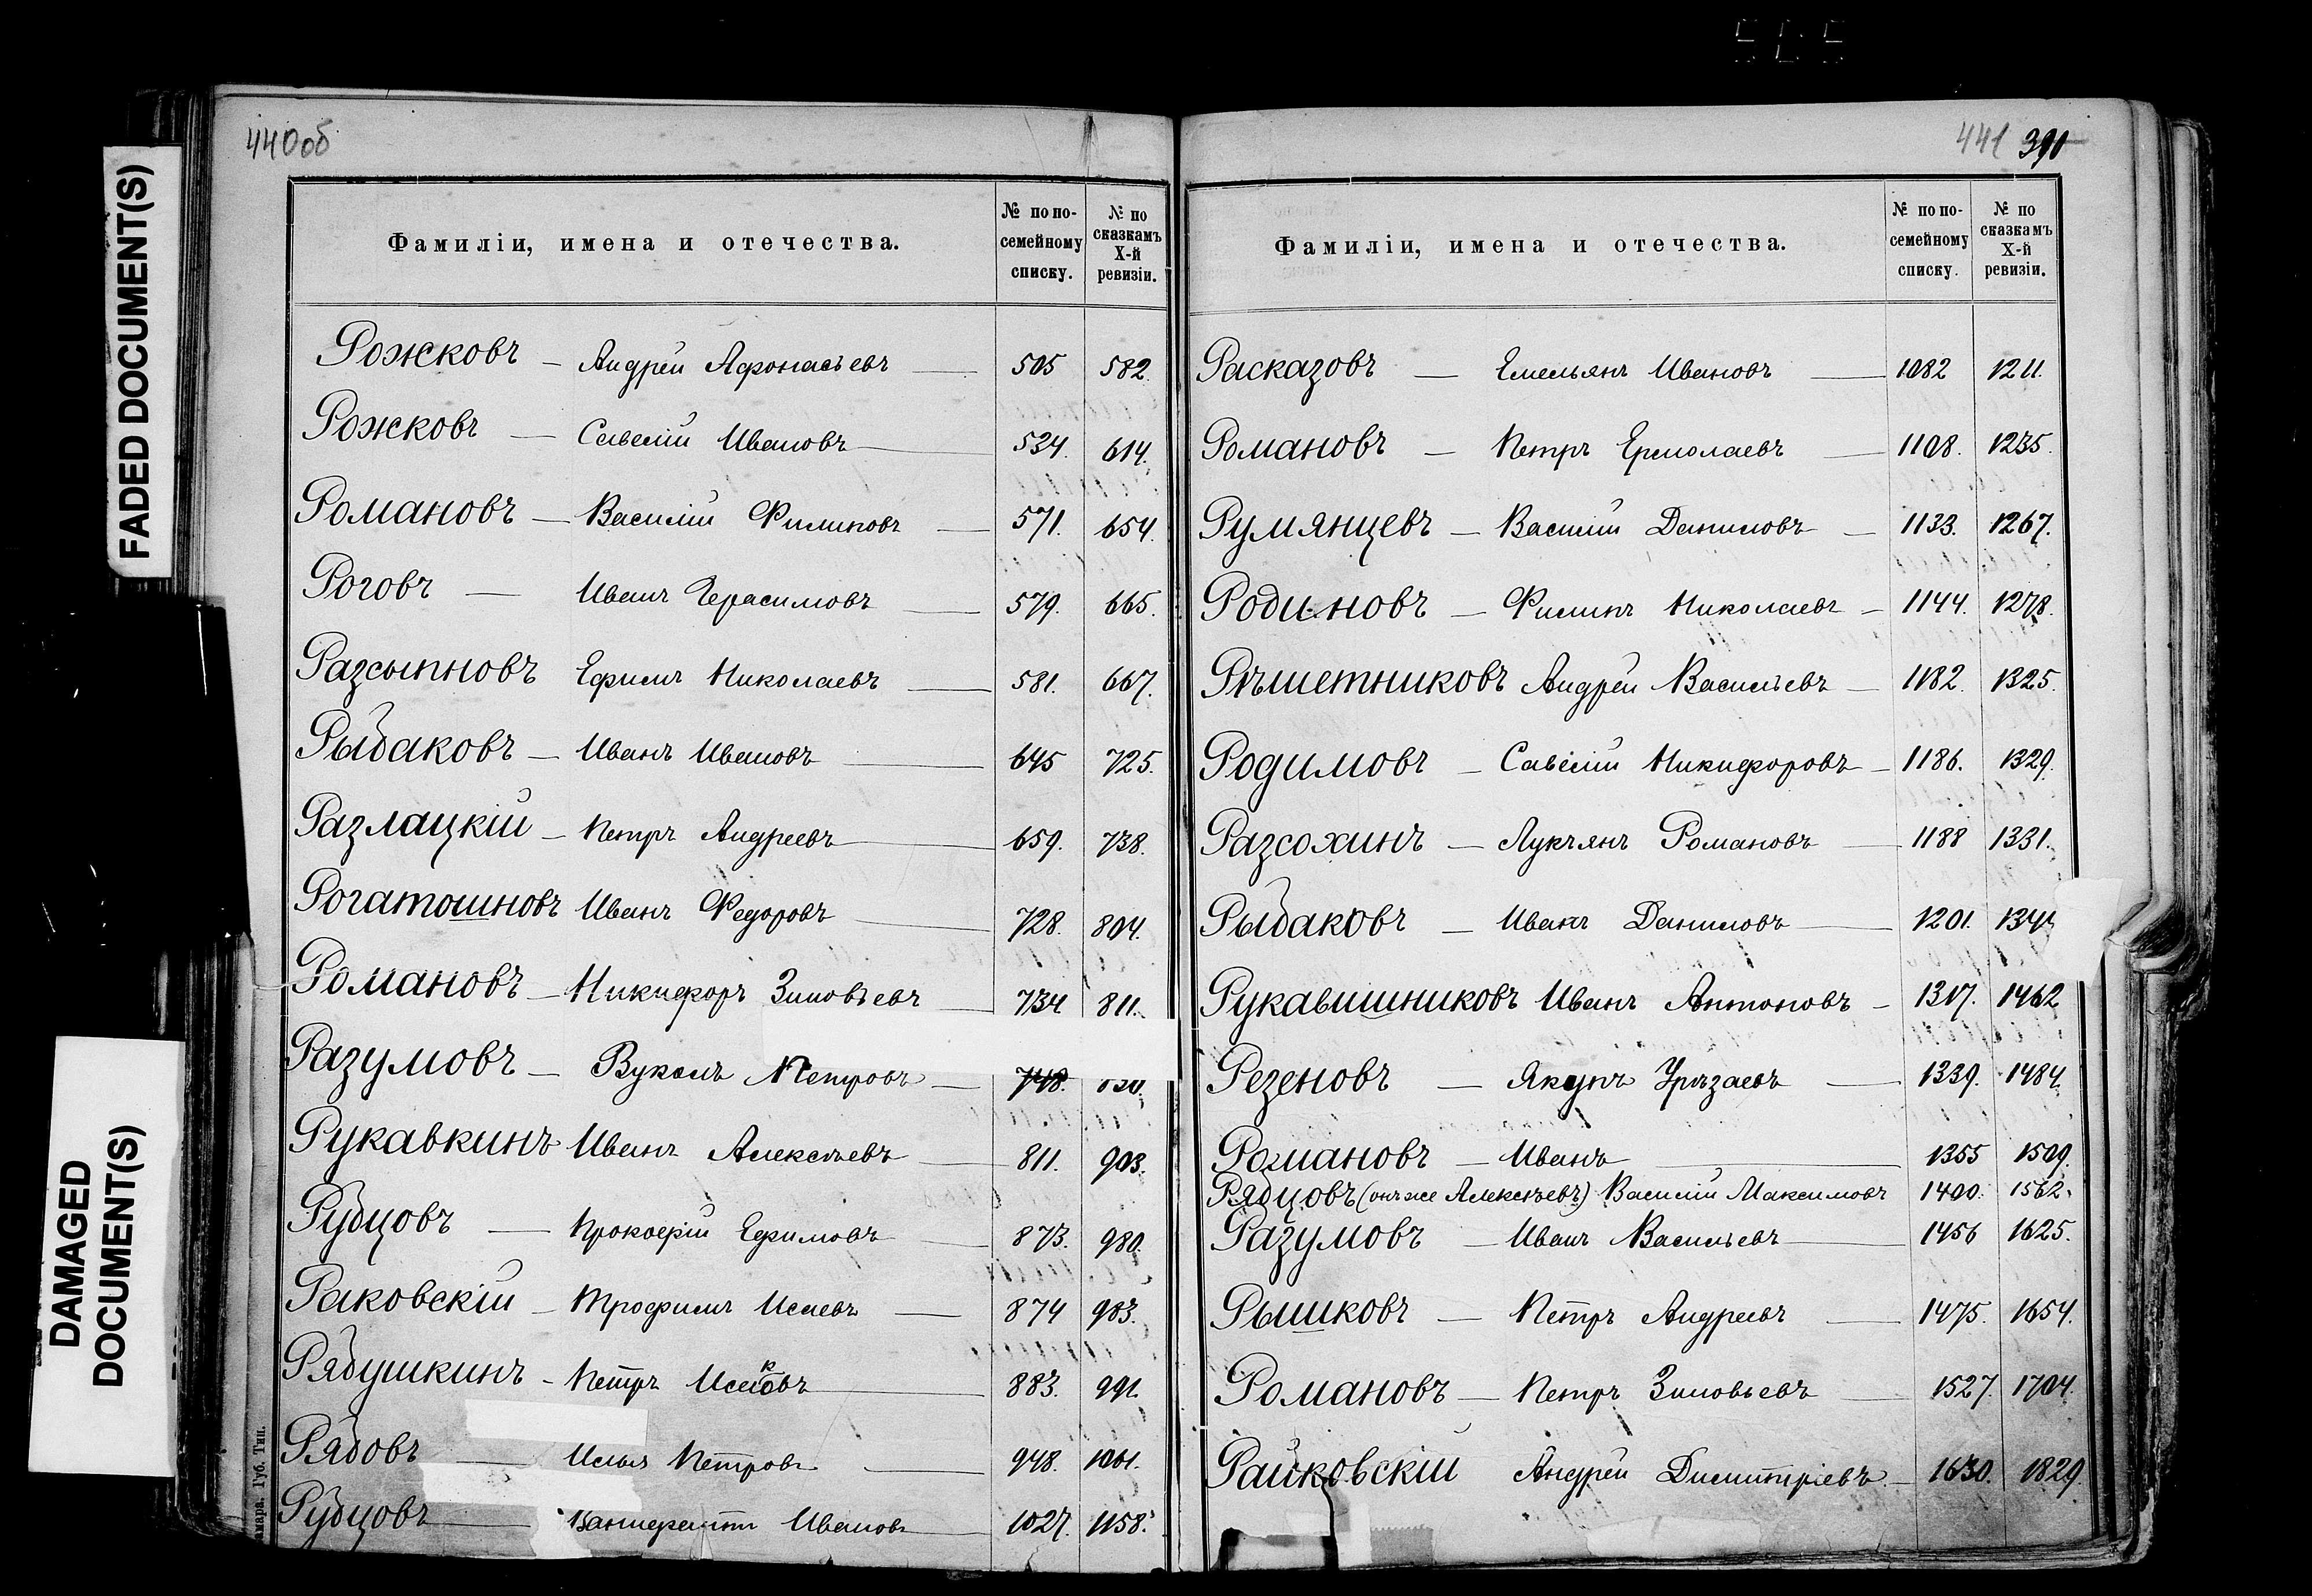 FADED DOCUMENT(S)
DAMAGED
DOCUMENT(S)
440об
Фамиліи, имена и отечества.
№ по по-
семейному
списку.
№ по
сказкамъ
X-й
ревизіи.
Рожковъ — Андрей Афонасьевъ — 505 582.
Рожковъ — Савелій Ивановъ — 534. 614.
Романовъ — Василій Филиповъ — 571. 654.
Роговъ — Иванъ Герасимовъ — 579. 665.
Разсыпновъ Ефимъ Николаевъ — 581. 667.
Рыбаковъ — Иванъ Ивановъ — 645 725.
Разлацкій — Петръ Андреевъ — 659. 738.
Рогатошновъ Иванъ Федоровъ — 728. 804.
Романовъ — Никифоръ Зиновьевъ — 734 811.
Разумовъ — Вуколъ Петровъ — 748.
Рукавкинъ Иванъ Алексѣевъ — 811. 903.
Рубцовъ — Прокофій Ефимовъ — 873. 980.
Раковскій — Трофимъ Исаевъ — 874 983.
Рябушкинъ — Петръ — 883. 991.
Рябовъ — Илья Петровъ — 948. 1061.
Рубцовъ — Ивановъ — 1027. 1158.
Губ. Тип.
441 391
Фамиліи, имена и отечества.
№ по по-
семейному
списку.
№ по
сказкамъ
X-й
ревизіи.
Расказовъ — Емельянъ Ивановъ — 1082 1211.
Романовъ — Петръ Ермолаевъ — 1108. 1235.
Румянцевъ — Василій Даниловъ — 1133. 1267.
Родионовъ — Филипъ Николаевъ — 1144. 1278.
Рѣшетниковъ Андрей Васильевъ — 1182. 1325.
Родимовъ — Савелій Никифоровъ — 1186. 1329.
Разсохинъ — Лукъянъ Романовъ — 1188 1331.
Рыбаковъ — Иванъ Даниловъ — 1201.
Рукавишниковъ Иванъ Антоновъ — 1317. 1462
Резеновъ — Якунъ Урѣзаевъ — 1339. 1484.
Романовъ — Иванъ — 1355 1509.
Рябцовъ (онъ же Алексѣевъ) Василій Максимовъ 1400. 1562.
Разумовъ — Иванъ Васильевъ — 1456 1625.
Рышковъ — Петръ Андреевъ — 1475. 1654.
Романовъ — Петръ Зиновьевъ — 1527. 1704.
Райковскій Андрей Димитріевъ — 1630. 1829